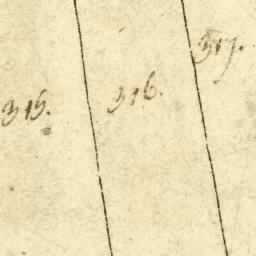 315.
316.
317.